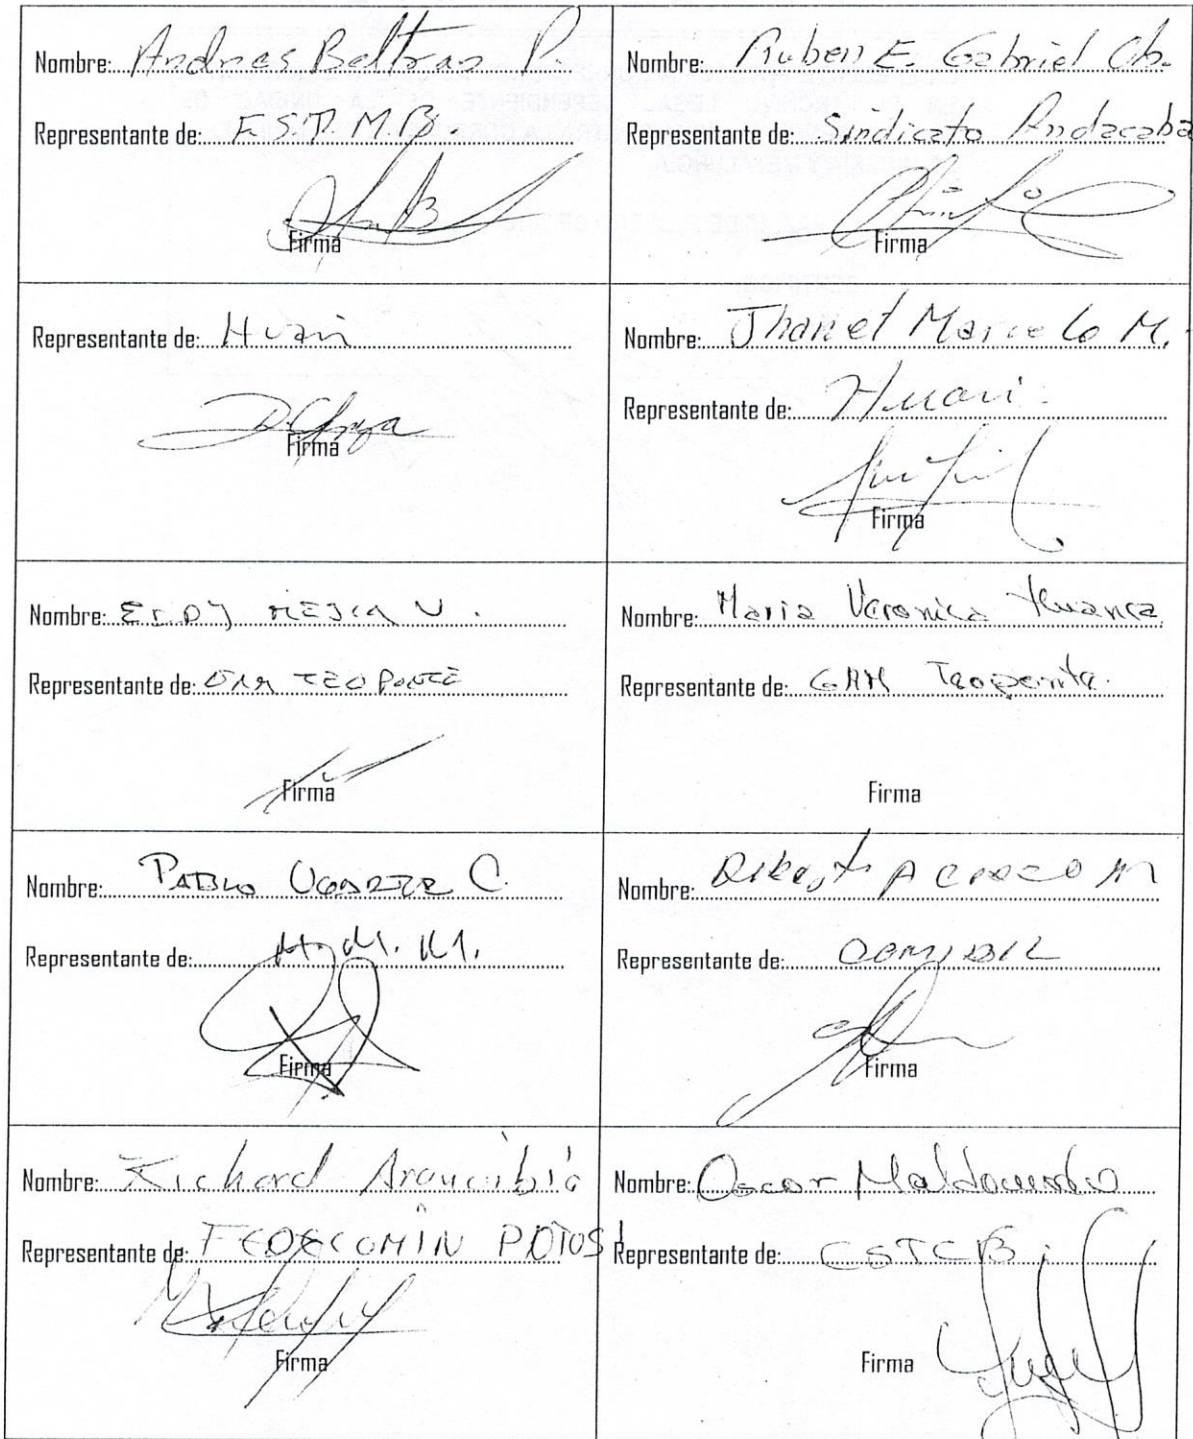 Nombre: Andres Beltran P.
Representante de: F.S.T.M.B
Firma
Nombre: Ruben E. Gabriel Ch.
Representante de: Sindicato Andacaba
Firma
Representante de: Huari
Firma
Nombre: Jhanet Marcelo M.
Representante de: Huari
Firma
Nombre: EDDY MEJIA V.
Representante de: GAM TEOPONTE
Firma
Nombre: Maria Veronica Huanca
Representante de: GAM Teoponte.
Firma
Nombre: PABLO UGARTE C.
Representante de: M.M.
Firma
Nombre:
Representante de: COMIBOL
Firma
Nombre: Richard Arancibia
Representante de: FEDECOMIN POTOSI
Firma
Nombre: Oscar Maldonado
Representante de: CSTCB
Firma